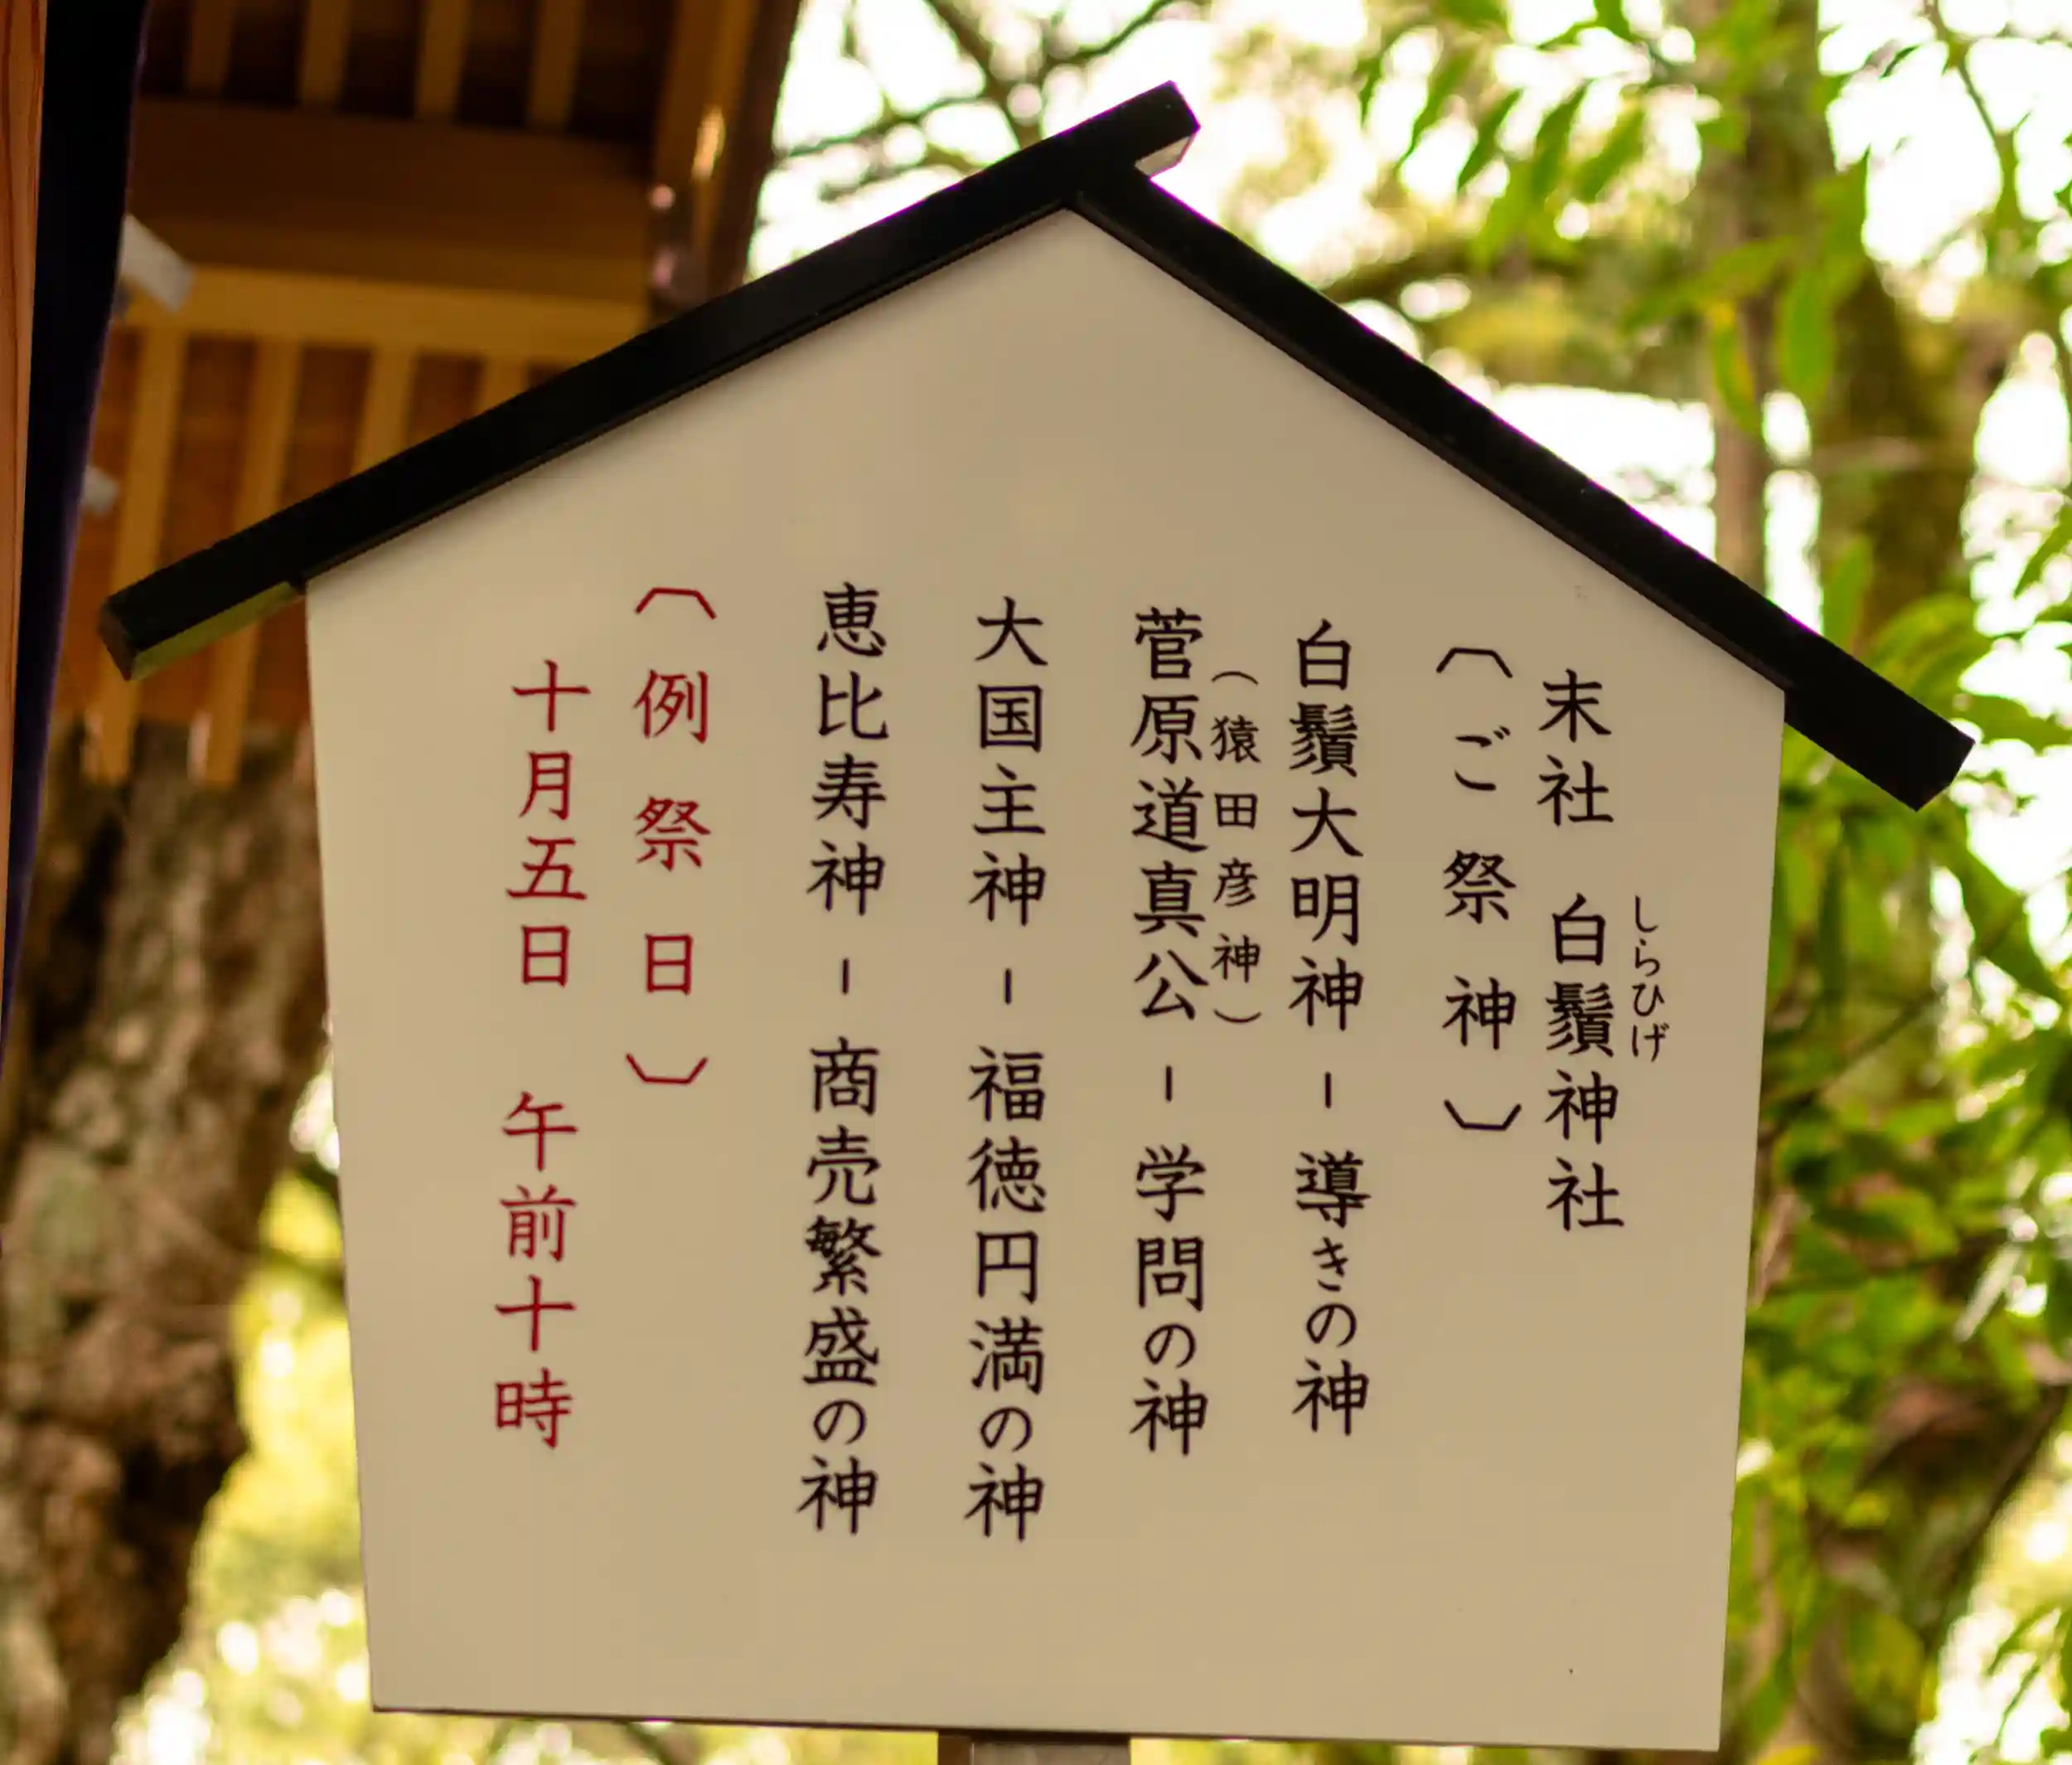 しらひげ
末社 白鬚神社
〔ご祭神〕
白鬚大明神-導きの神
(猿田彦神)
菅原道真公-学問の神
大国主神-福徳円満の神
恵比寿神-商売繁盛の神
〔例祭日〕
十月五日 午前十時